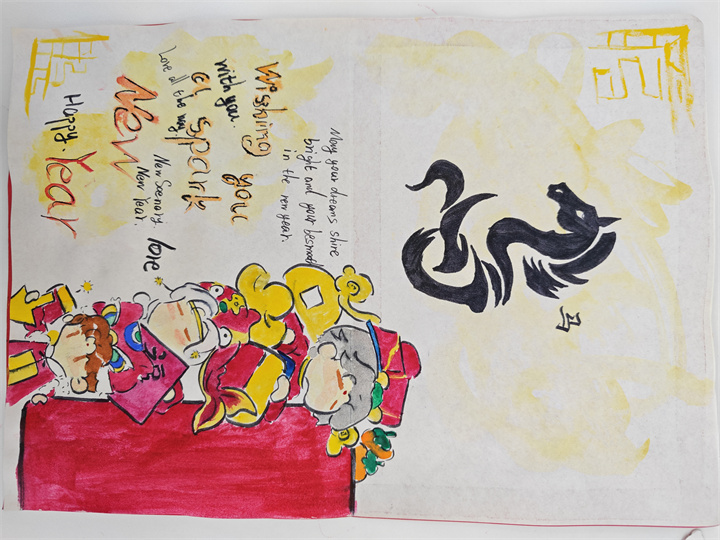 May your dreams shine
bright and your
in the new year.
Wishing you
with you.
a spark
Love all the way
New Scenery,
New Year.
love
New
Happy. Year
马